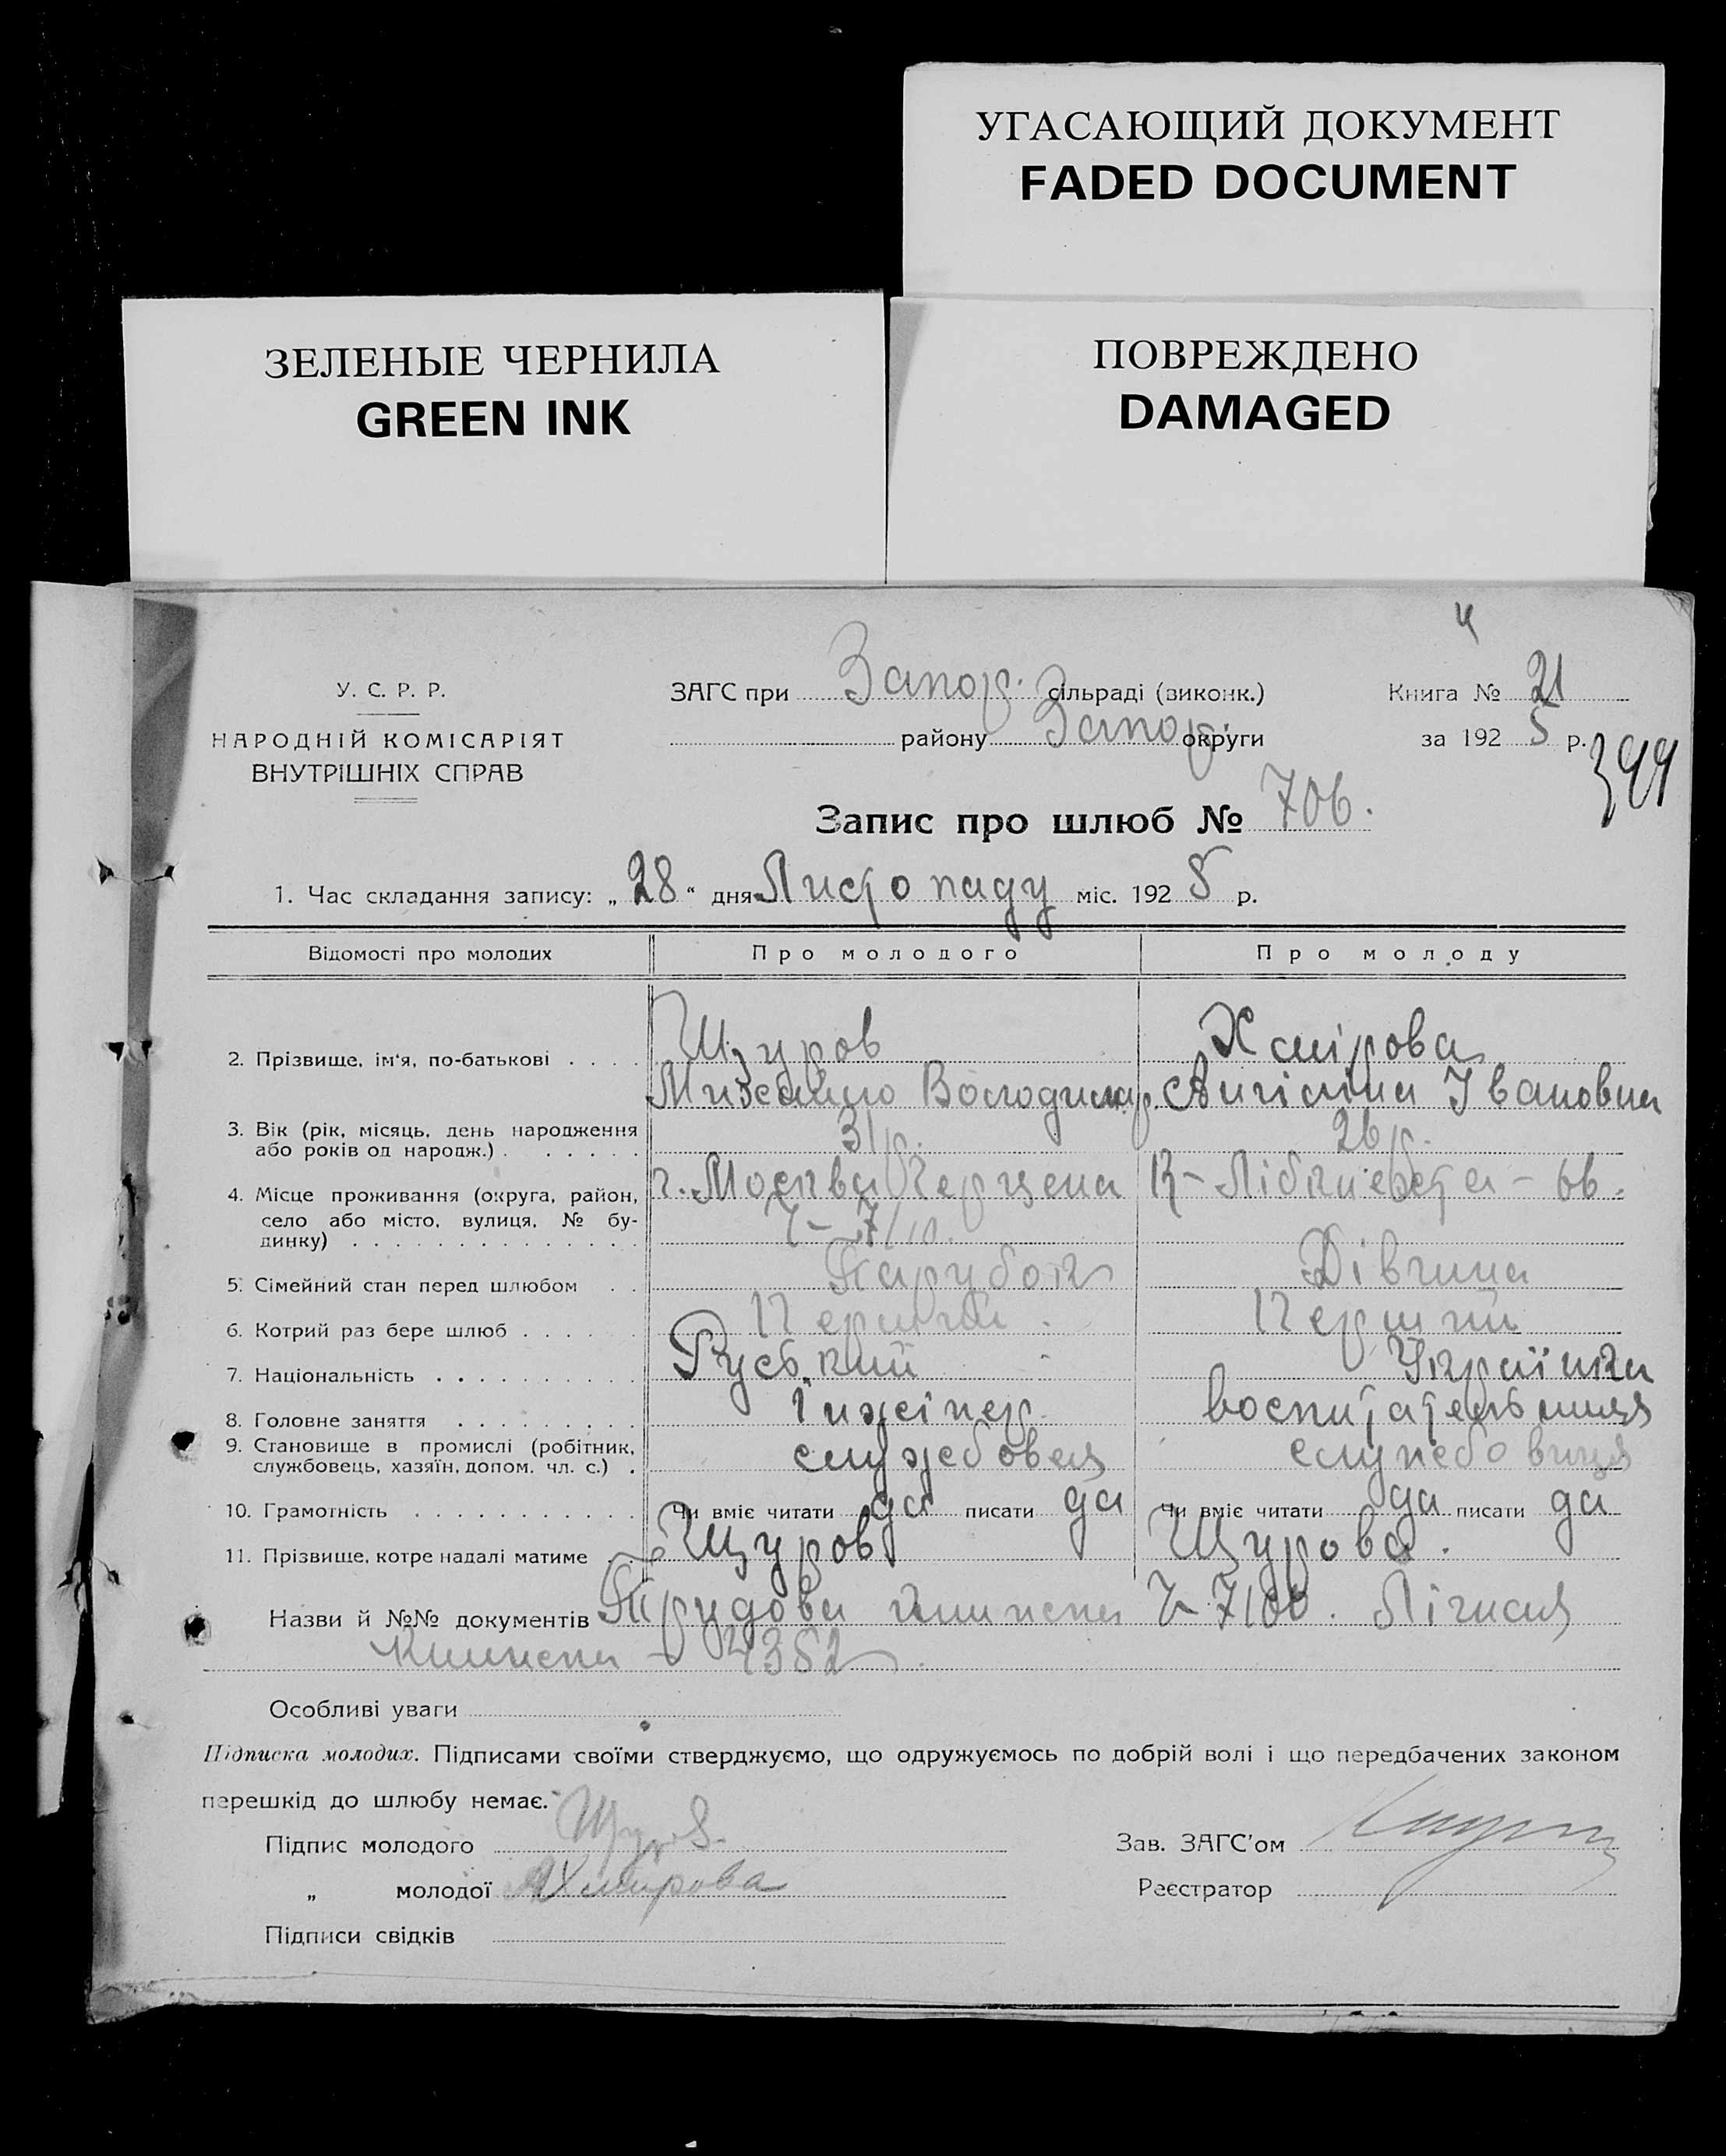 УГАСАЮЩИЙ ДОКУМЕНТ
FADED DOCUMENT
ЗЕЛЕНЫЕ ЧЕРНИЛА
GREEN INK
ПОВРЕЖДЕНО
DAMAGED
У. С. Р. Р.
НАРОДНІЙ КОМІСАРІЯТ
ВНУТРІШНІХ СПРАВ
ЗАГС при Запор. сільраді (виконк.)
району Запор. округи
Книга № 21
за 192 5 р.
399
Запис про шлюб № 706.
1. Час складання запису: „ 28 “ дня Листопаду міс. 192 5 р.
Відомості про молодих Про молодого Про молоду
2. Прізвище, ім'я, по-батькові Щуров Хмірова
Володимир. Івановна
3. Вік (рік, місяць, день народження 31 р. 26 р.
або років од народж.)
4. Місце проживання (округа, район, г. Москва Герцена Лібкнехта - 66.
село або місто, вулиця, № бу-
динку)
5. Сімейний стан перед шлюбом Парубок Дівчина
6. Котрий раз бере шлюб Перший Перший
7. Національність Руський Українка
8. Головне заняття Інжінер воспитательниця
9. Становище в промислі (робітник, службовець, хазяїн, допом. чл. с.) службовець службовиця
10. Грамотність Чи вміє читати да писати да Чи вміє читати да писати да
11. Прізвище, котре надалі матиме Щуров Щурова.
Назви й №№ документів Трудова книжка 7100. Лічная
книжка - 4382
Особливі уваги
Підписка молодих. Підписами своїми стверджуємо, що одружуємось по добрій волі і що передбачених законом
перешкід до шлюбу немає.
Підпис молодого Щуров
Зав. ЗАГС'ом
„ молодої АХмирова
Реєстратор
Підписи свідків